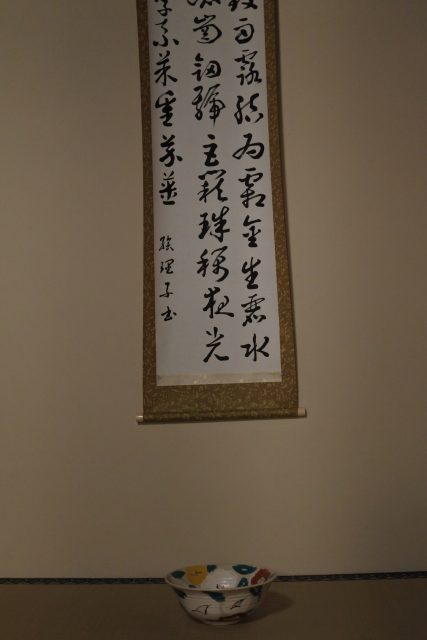 致雨露結為霜金生麗水
崗釼號巨闕珠稱夜光
柰菜重芥薑
理子書